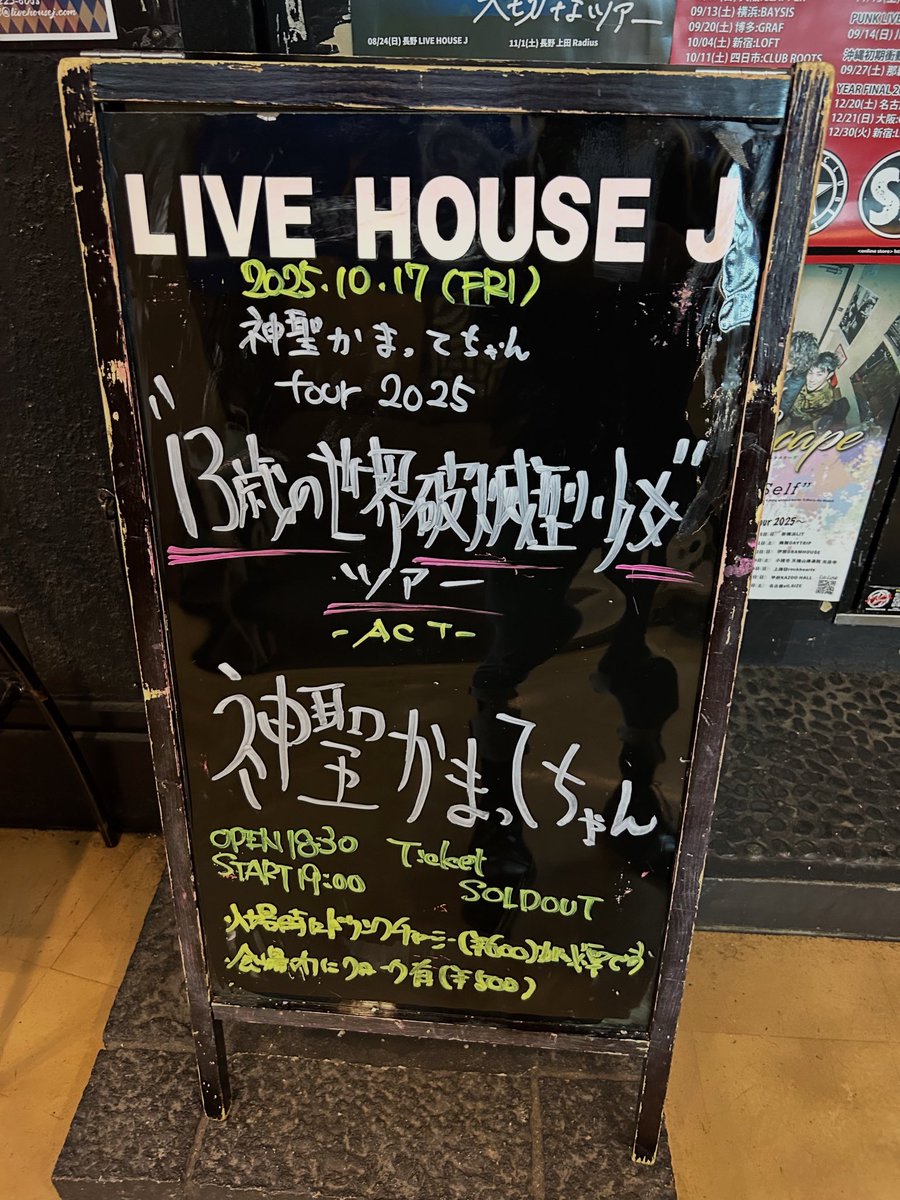 @livehousej.com
大切なツアー
08/24(日) 長野 LIVE HOUSE J
11/1(土) 長野 上田 Radius
09/13(土) 横浜:BAYSIS
09/20(土) 博多:GRAF
10/04(土) 新宿:LOFT
10/11(土) 四日市:CLUB ROOTS
PUNK LIVE
09/14(日)
沖縄初期衝動
09/27(土)
YEAR FINAL 2
12/20(土) 名古
12/21(日) 大阪:
12/30(火) 新宿:L
LIVE HOUSE J
2025.10.17(FRI)
神聖かまってちゃん
tour 2025
"13歳の世界破滅型少女"
ツアー
-ACT-
神聖かまってちゃん
OPEN 18:30
START 19:00
Ticket
SOLDOUT
・入場時にドリンクチャージ(¥600)が必要です
・会場内にクローク有(¥500)
cape
Self"
our 2025〜